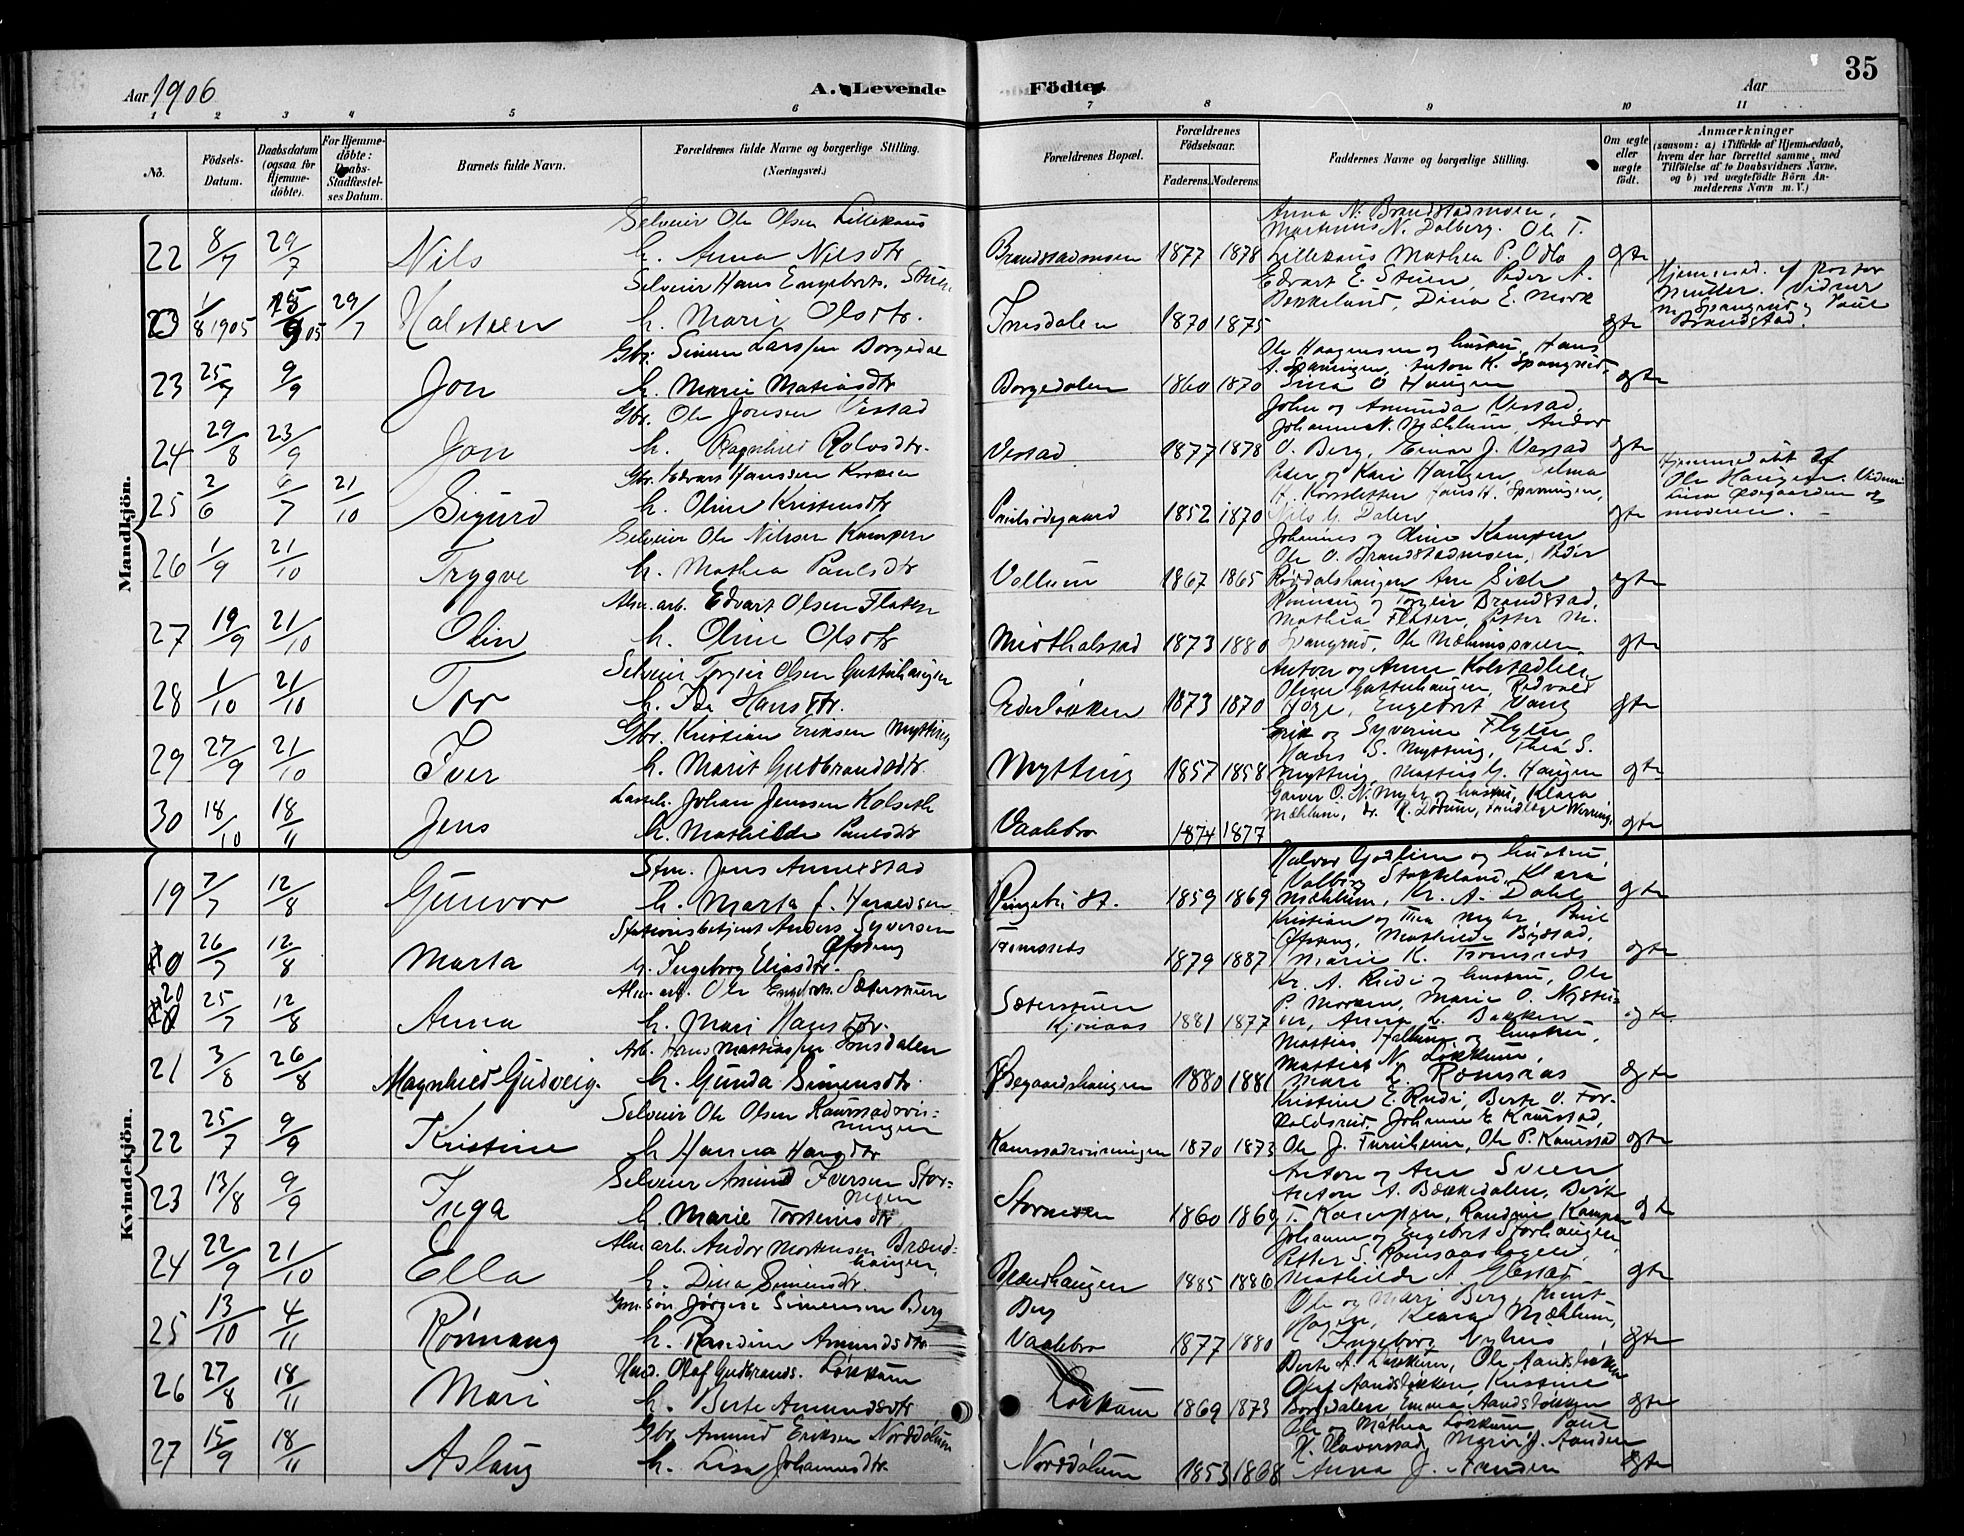 Aar 1906
A. Levende Födte.
Aar
35
1 2 3 4 5 6 7 8 9 10 11
No.
Födsels-Datum.
Daabsdatum (ogsaa for Hjemmedöbte).
For Hjemmedöbte: Daabs-Stadfæstelses Datum.
Barnets fulde Navn.
Forældrenes fulde Navne og borgerlige Stilling. (Næringsvei.)
Forældrenes Bopæl.
Forældrenes Födselsaar.
Faderens. Moderens.
Faddernes Navne og borgerlige Stilling.
Om ægte eller uægte födt.
Anmærkninger
(saasom: a) i Tilfælde af Hjemmedaab, hvem der har forrettet samme, med Tilföielse af to Daabsvidners Navne, og b) ved uægtefödte Börn Anmelderens Navn m. V.)
Mandkjön.
22 8/7 29/7 Nils Selveier Ole Olsen Lillehaus h. Anna Nilsdtr Brandstadmoen 1877 1878 Anna N. Brandstadmoen, Martinus N. Dalberg. Ole T. Lillehaus Mathea P. Odlo ægte
1/8 1905 29/7 Halsteen Selveier Hans Engebrets. Stuen h. Marie Olsdtr. Imsdalen 1870 1875 Edvart E. Stuen, Peder A. Bækkeland, Dina E. Mork ægte Hjemmed. af Pastor Müller. Vidner M. Spangrud og Paul Brandstad.
23 25/7 9/9 Jon Gbr. Simen Larssen Borgedal h. Marie Matiasdtr Borgedalen 1860 1870 Ole Haagensen og hustru, Hans A. Spaningen, Anton K. Spangrud, Tina O Haugen ægte
24 29/8 23/9 Jon Gbr. Ole Jonsen Vestad h. Ragnhild Rolvsdtr. Vestad 1877 1878 John og Amunda Vestad, Johannes N. Mæhlum, Andor O. Berg, Einar J. Vestad ægte
25 2/6 /7 21/10 Sigurd Gbr. Edvart Hanssen h. Oline Kristensdtr Paulsødegaard 1852 1870 Peter og Kari Haugen, Selma H. Korsletten Hans H. Spaningen, Nils G. Dalen ægte Hjemmedöbt af Ole Haugen. Vidner Lina Ødegaarden og moderen. —
26 1/9 21/10 Trygve Selveier Ole Nilssen Kampen h. Mathea Paulsdtr Vollum 1867 1865 Johannes og Oline Kampen Ole O. Brandstadmoen, Peder ægte
27 19/9 21/10 Olin Alm. arb. Edvart Olsen Flaten h. Oline Olsdtr Midthalstad 1873 1880 Rønning og Torgeir Brandstad, Mathea Flaten, Petter M. Spangrud, Ole Mæhlumsveen ægte
28 1/10 21/10 Tor Selveier Torgeir Olsen Guttuhaugen h. Ida Hansdtr. Ederløkken 1873 1870 Anton og Anne Kolstadlien Oline Guttuhaugen, Redvald Höge, Engebret Vang ægte
29 27/9 21/10 Iver Gbr. Kristian Eriksen Mytting h. Marit Gudbrandsdtr. Mytting 1857 1858 Erik og Syverine Flyen, Hans S. Mytting, Thea S. Mytting, Mattias G. Haugen ægte
30 18/10 18/11 Jens Johan Jenssen Kolseth h. Mathilde Paulsdtr Vaalebro 1874 1877 Garver O. N. Myhr og hustru, Klara Mæhlum, dr. R. Dørum, ægte
Kvindekjön.
19 7/7 12/8 Gunvor Stm. Jens Annexstad h. Marta f. Haraldsen Ringebu St. 1859 1869 Halvor Gjølien og hustru, Valborg Stokkeland, Klara Mæhlum, Kr. A. Dahl ægte
26/7 12/8 Marta Stationsbetjent Anders Syversen Ofsteng h. Ingeborg Eliasdtr. Tromsnes 1879 1887 Kristian og Thea Myhr, Emil Ofsteng, Mathilde Bystad, Marie K. Tromsnes ægte
20 25/7 12/8 Anna Alm. arb. Ole Engebrets. Sæterstuen h. Mari Hansdtr. Sæterstuen Kjønaas 1881 1877 Kr. A. Rudi og hustru, Ole P. Morken, Marie O. Nystuen, Anna L. Bakken ægte
21 3/8 26/8 Magnhild Gudveig. Arb. Hans Mattiassen Imsdalen h. Gunda Simensdtr. Øegaardshaugen 1880 1881 Mattias Fallung og hustru, Mattias N. Løkkum, Mari L. Romsaas ægte
22 25/7 9/9 Kristine Selveier Ole Olsen Kaurstadrønningen h. Hanna Hansdtr Kaurstadrønningen 1870 1873 Kristine E. Rudi, Berte O. Forkalsrud, Johanne E Kaurstad, Ole J. Furuheim, Ole P. Kaurstad ægte
23 13/8 9/9 Inga Selveier Amund Iversen Stormoen h. Marie Torstensdtr Stormoen 1860 1869 Anton og Ane Sveen Anton A. Bækkedalen, Berte T. Kampen, Randine Kampen ægte
24 22/9 21/10 Ella Alm arb. Andor Mortensen Brændhaugen h. Dina Simensdtr. Brændhaugen 1885 1886 Johanne og Engebret Storhaugen, Petter S. Romsaashagen, Mathilde A. Glestad ægte
25 13/10 4/11 Rønnaug Gm. søn. Jørgen Simensen Berg h. Randine Amundsdtr. Berg Vaalebro 1877 1880 Ole og Mari Berg, Knut Hagen, Klara Mæhlum, Ingeborg Nyhus ægte
26 27/8 18/11 Mari Hand. Olaf Gudbrands. Løkkum h. Berte Amundsdtr Løkkum 1869 1873 Berte A. Løkkum, Ole Aandsløkken Olaf Aandsløkken, Kristine Borgdalen Emma Aandsløkken ægte
27 15/9 18/11 Aslaug Gbr Amund Eriksen Norddölum h. Lisa Johannesdtr. Norddölum 1853 1868 Ole og Mathea Løkkum Paul H. Haverstad, Marie J. Aanden Anna J. Aanden ægte